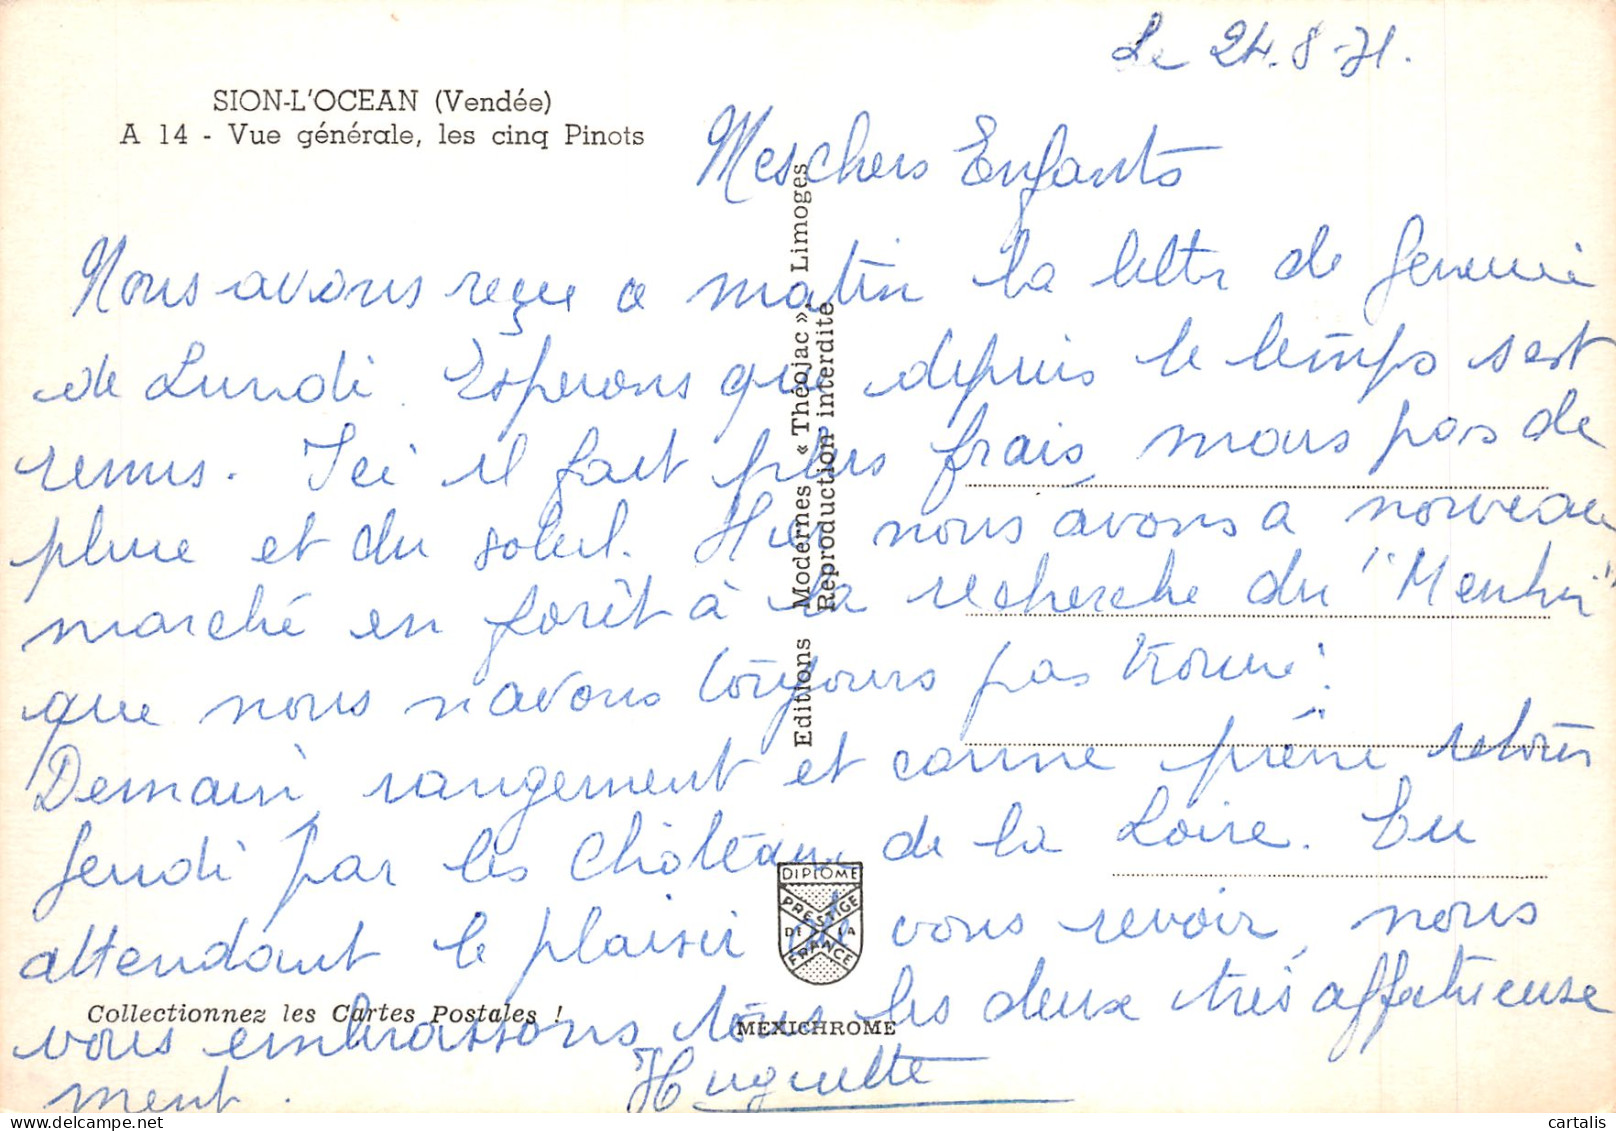 Le 24.8-71.
SION-L'OCEAN (Vendée)
A 14 - Vue générale, les cinq Pinots
Mes chers Enfants
Nous avons reçu ce matin la lettre de
de Lundi. Esperons que depuis le temps s'est
remis. Ici il fait plus frais, mais pas de
pluie et du soleil. Hier nous avons à nouveau
marché en forêt à la recherche du "Menhir"
que nous n'avons toujours pas trouvé!
Demain rangement et comme prévu retour
Jeudi par les Châteaux de la Loire. En
attendant le plaisir de vous revoir, nous
vous embrassons tous les deux très affectueuse
ment.
Huguette
Editions Modernes « Théojac », Limoges
Reproduction interdite
DIPLOME
PRESTIGE
DE LA
FRANCE
Collectionnez les Cartes Postales !
MEXICHROME
cartalis